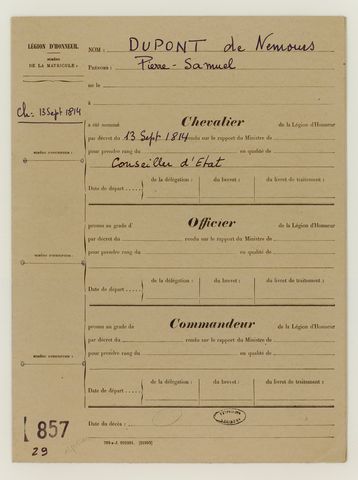 LÉGION D'HONNEUR.
NUMÉRO
DE LA MATRICULE :
NOM : DUPONT de Nemours
PRÉNOMS : Pierre-Samuel
né le
à
Ch. 13 Sept 1814
a été nommé Chevalier de la Légion d'Honneur
par décret du 13 Sept 1814 rendu sur le rapport du Ministre de
pour prendre rang du en qualité de
Conseiller d'Etat
de la délégation : du brevet : du livret de traitement :
Date de départ
promu au grade d' Officier de la Légion d'Honneur
par décret du rendu sur le rapport du Ministre de
pour prendre rang du en qualité de
de la délégation : du brevet : du livret de traitement :
Date de départ
promu au grade de Commandeur de la Légion d'Honneur
par décret du rendu sur le rapport du Ministre de
pour prendre rang du en qualité de
de la délégation : du brevet : du livret de traitement :
Date de départ
Date du décès :
L 857
29